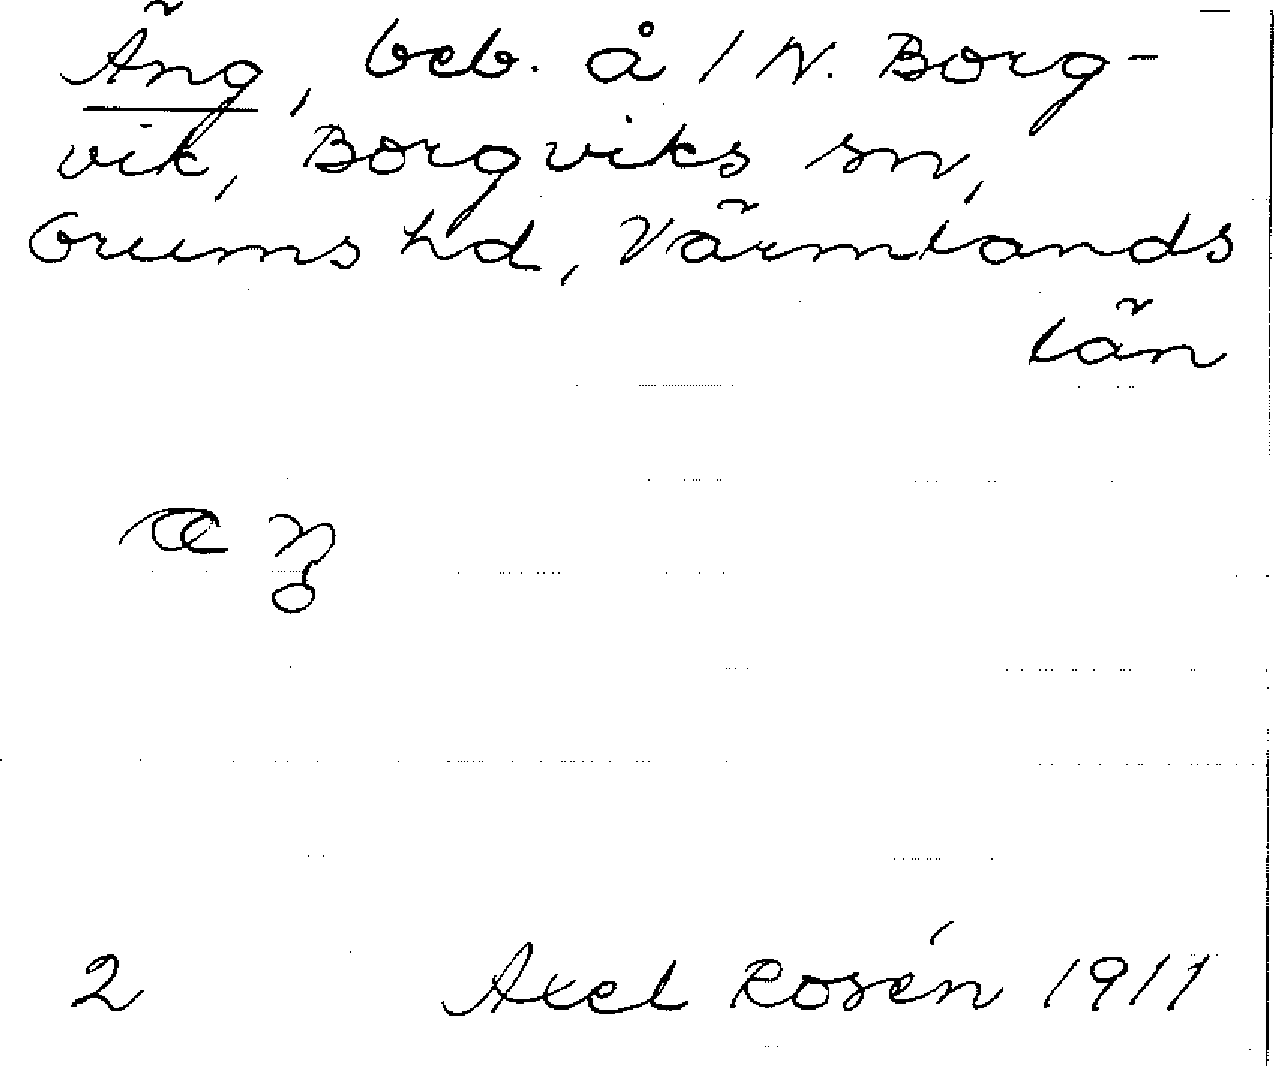 Äng, beb. å 1 N. Borg-
vik, Borgviks sn,
Grums hd, Värmlands
län
2 Axel Rosén 1911